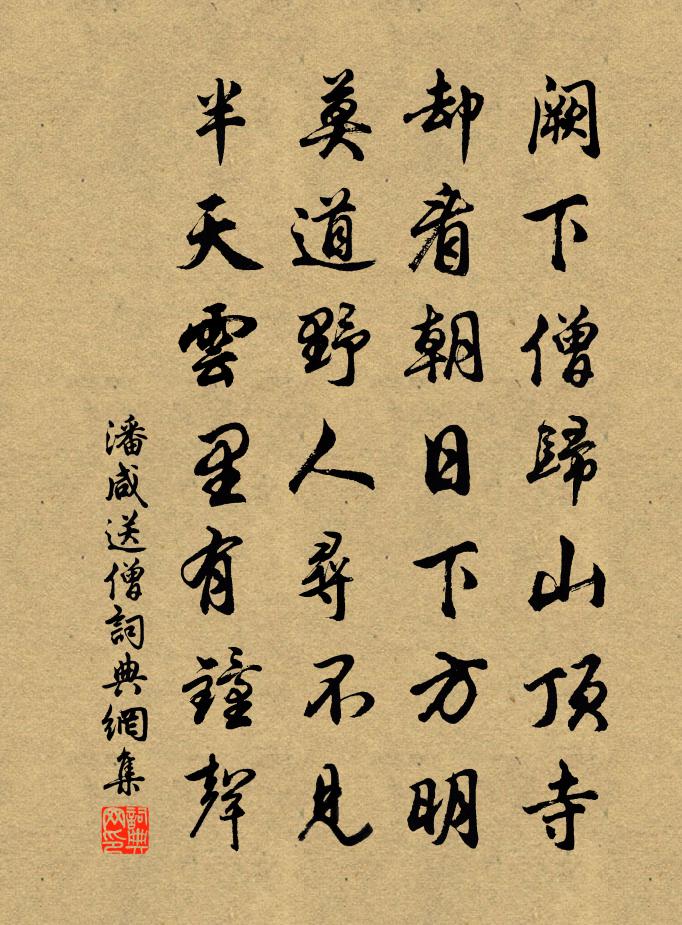 闕下僧歸山頂寺
却看朝日下方明
莫道野人尋不見
半天雲里有鐘聲
潘咸送僧詞典網集
詞典網印